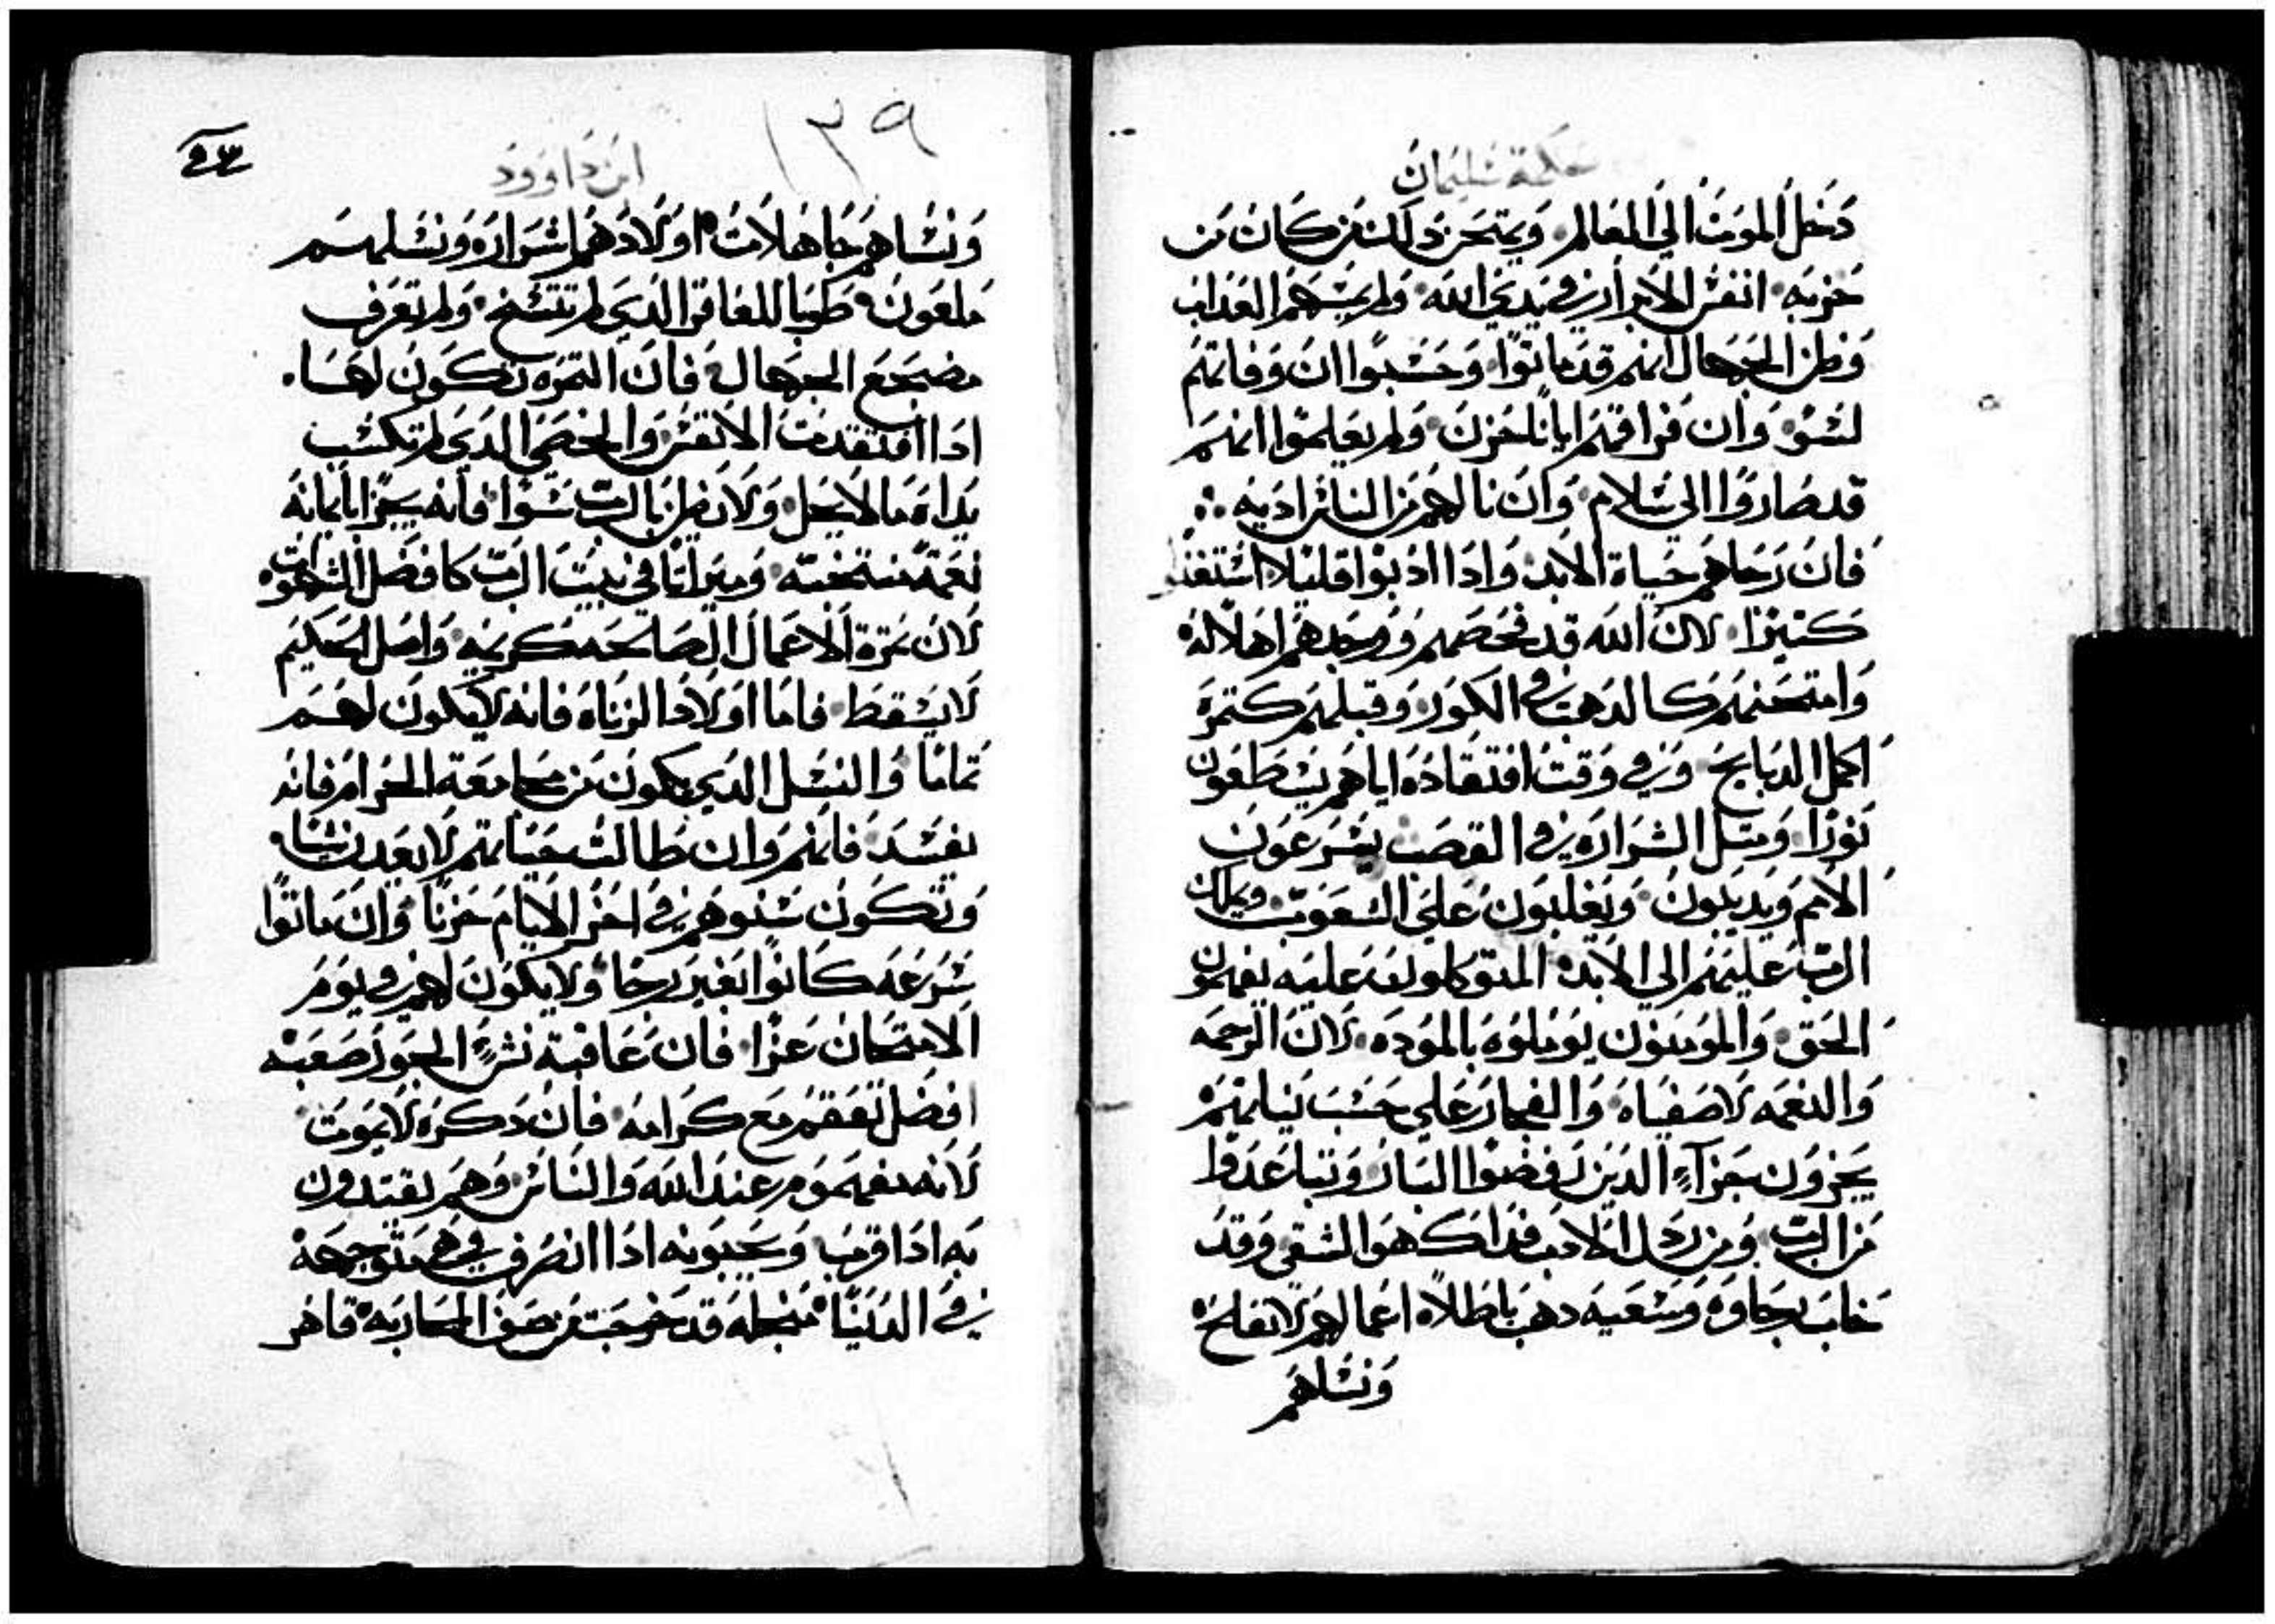 حكمة سليمان
دخل الموت الي العالم ويمتحن ذلك من كان من
حزبه انفس الابرار في يدي الله ولم يمسهم العذاب
وظن الجهال انهم قد ماتوا وحسبوا ان وفاتهم
لسو وان فراقهم ايانا لحزن ولم يعلموا انهم
قد صاروا الي سلام وان نالهم من الناس اذيه
فان رجاهم حياة الابد واذا اذبوا قليلا استغنوا
كثيرا لان الله قد فحصهم ووجدهم اهلا له
وامتحنهم كالذهب في الكور وقبلهم كتمرة
اكمل الدبايح وفي وقت افتقاده اياهم يسطعون
نورا ومثل الشراره في القصب يسرعون
الامم ويديلون ويغلبون علي الشعوب ويملك
الرب عليهم الي الابد المتوكلون عليه يفهمون
الحق والمومنون يوملوه بالموده لان الرحمه
والنعمه لاصفياه والفجار علي حسب نياتهم
يجزون جزآء الذين رفضوا البار وتباعدوا
من الرب ومن ردل الادب فذاك هو الشقي وقد
خاب رجاوه وسعيه دهب باطلا اعمالهم لا تفلح
ونساهم
١٣٩
ابن داوود
ونساهم جاهلات اولادهم اشراره ونسلهم
ملعون طوبا للعاقر الذي لم تتسخ ولم تعرف
مضجع الجهال فان الثمره تكون لها
اذا افتقدت الانفس والخصي الذي لم تكسب
يداه ما لا يحل ولا يظن بالرب سوا فانه يجزا بايمانه
نعمة منتخبه وميراثا في بيت الرب كافضل الشهوات
لان ثمرة الاعمال الصالحه كريمه واصل الحكيم
لا يسقط فاما اولاد الزناه فانه لا يكون لهم
تماما والنسل الذي يكون من مجامعة الحرام فانه
يفسد فانهم وان طالت حياتهم لا يعدن شيا
وتكون سنوهم في اخر الايام حزنا وان ماتوا
سرعه كانوا بغير رجا ولا يكون لهم في يوم
الامتحان عزا فان عاقبة نشء الجور صعبه
افضل تعقم مع كرامه فان ذكره لا يموت
لانه مفهوم عند الله والناس وهم يقتدون
به اذا قرب ويحبونه اذا انصرف في هي متوجهة
في الدنيا منجله قد خرجت من صف المحاربه قاهر